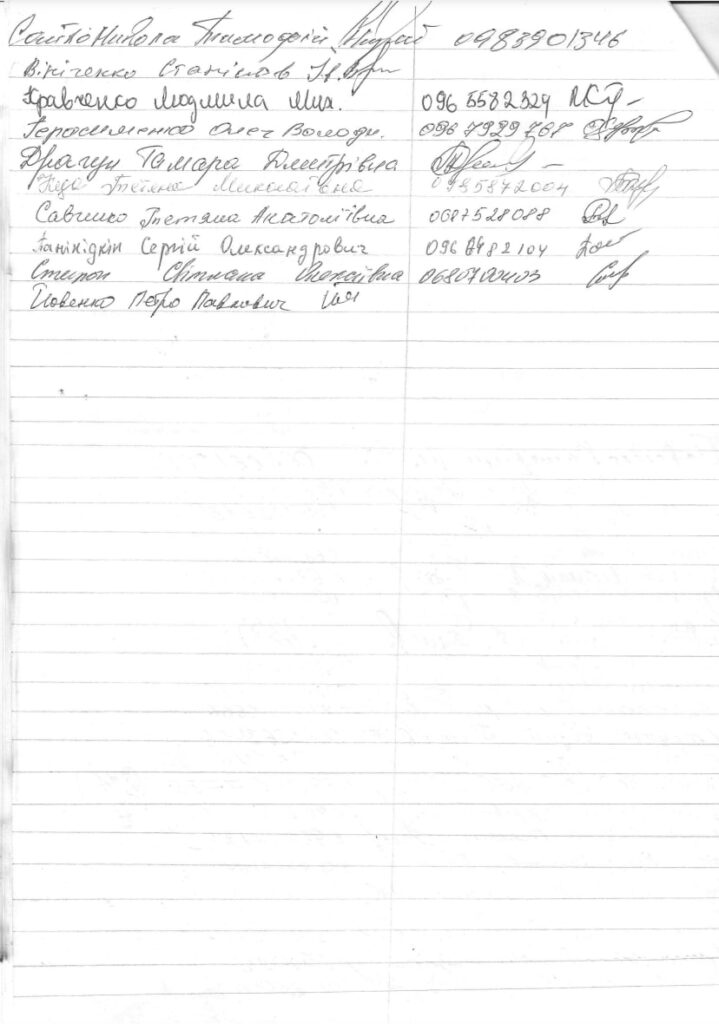 Сайко Микола Тимофійов 0983901346
Вініченко Станіслав
Кравченко Людмила Мих. 096 5582324
Герасименко Олег Володи. 0967929768
Драгун Тамара Дмитрівна
Тетяна Миколаївна 0985872004
Савченко Тетяна Анатоліївна 0687528088
Панікідкін Сергій Олександрович
Світлана Олексіївна
Петро Павлович